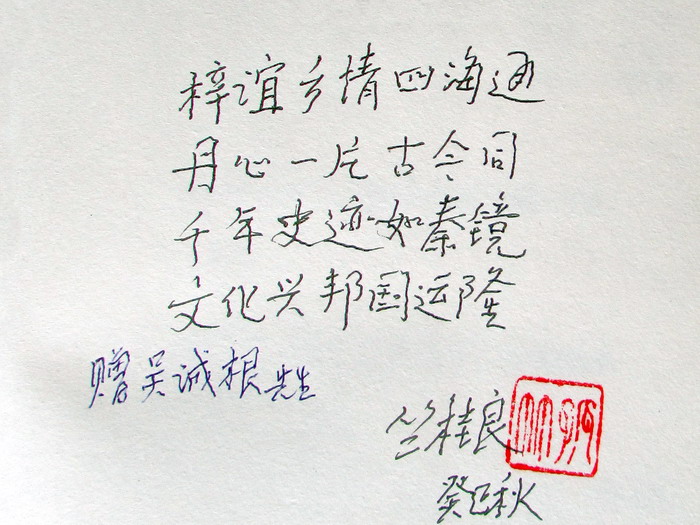 梓谊乡情四海通
丹心一片古今同
千年史迹如秦镜
文化兴邦国运隆
赠吴诚根先生
竺桂良
癸巳秋